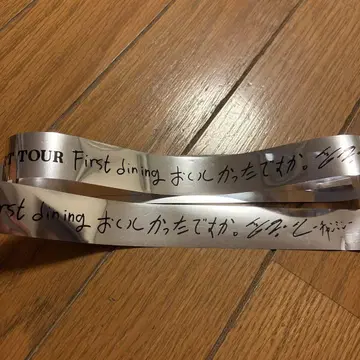 T TOUR First dining おいしかったですか。
rst dining おいしかったですか。